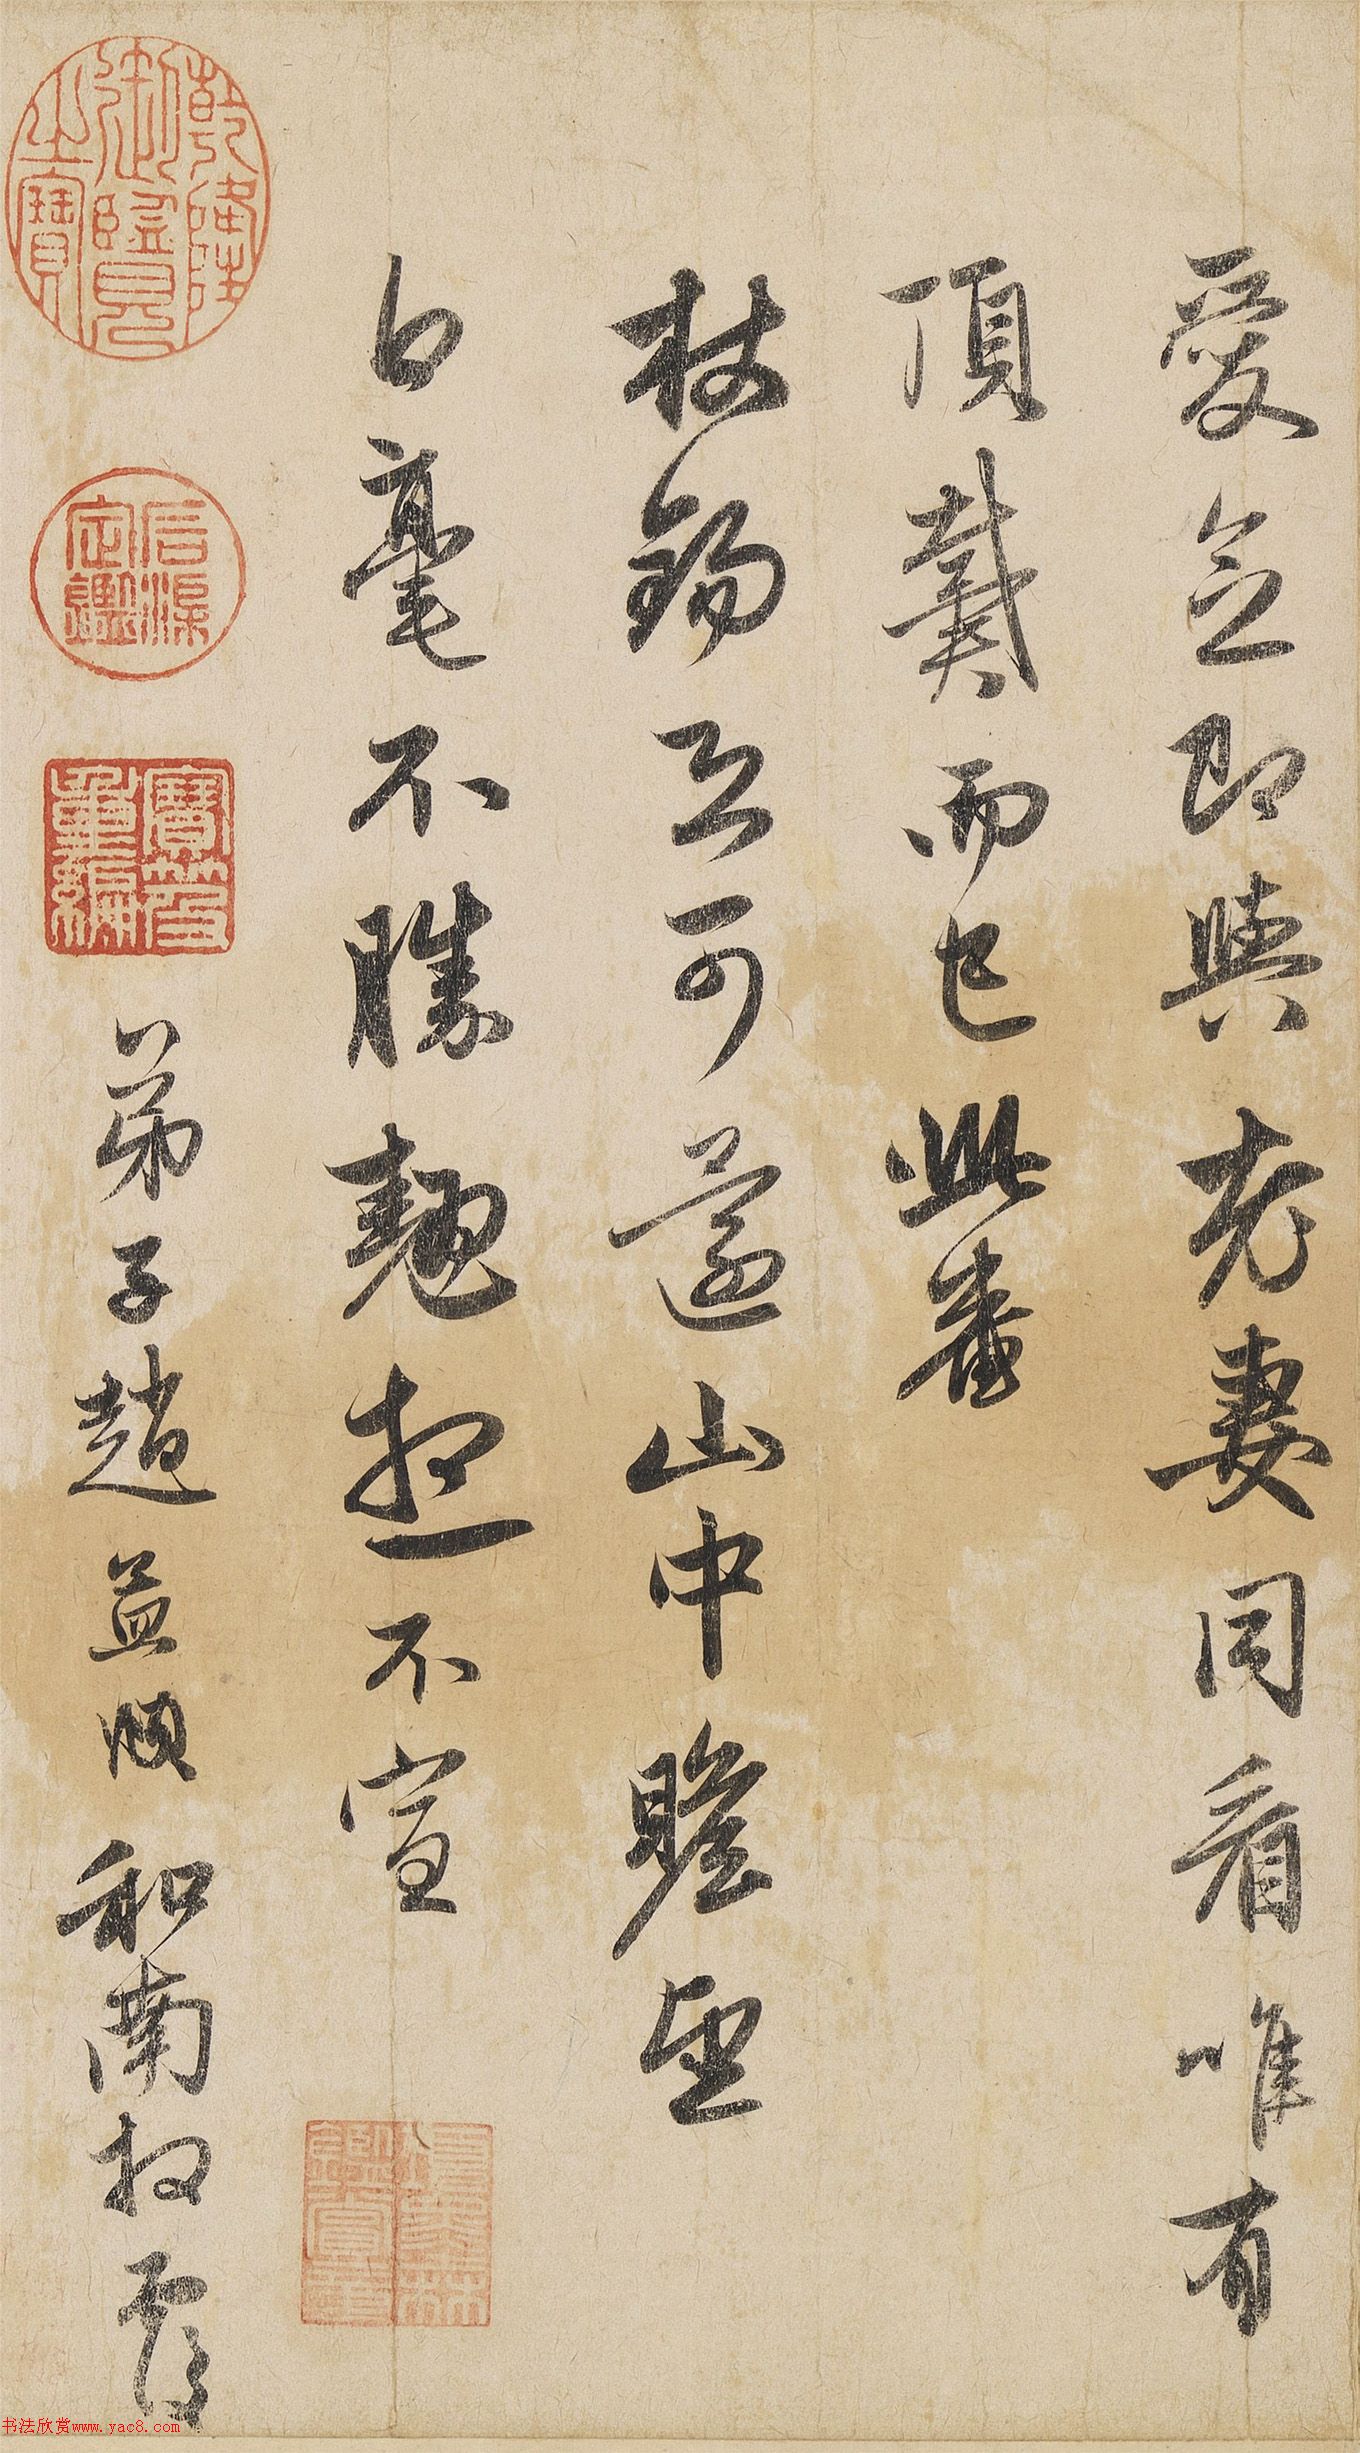 愛念即與老妻同看唯有
頂戴而已此番
杖錫可還山中瞻望
白毫不勝翹想不宣
弟子趙孟頫和南拜覆
乾隆御覽之寶
石渠定鑑
寶笈重編
項墨林鑑賞章
书法欣赏www.yac8.com